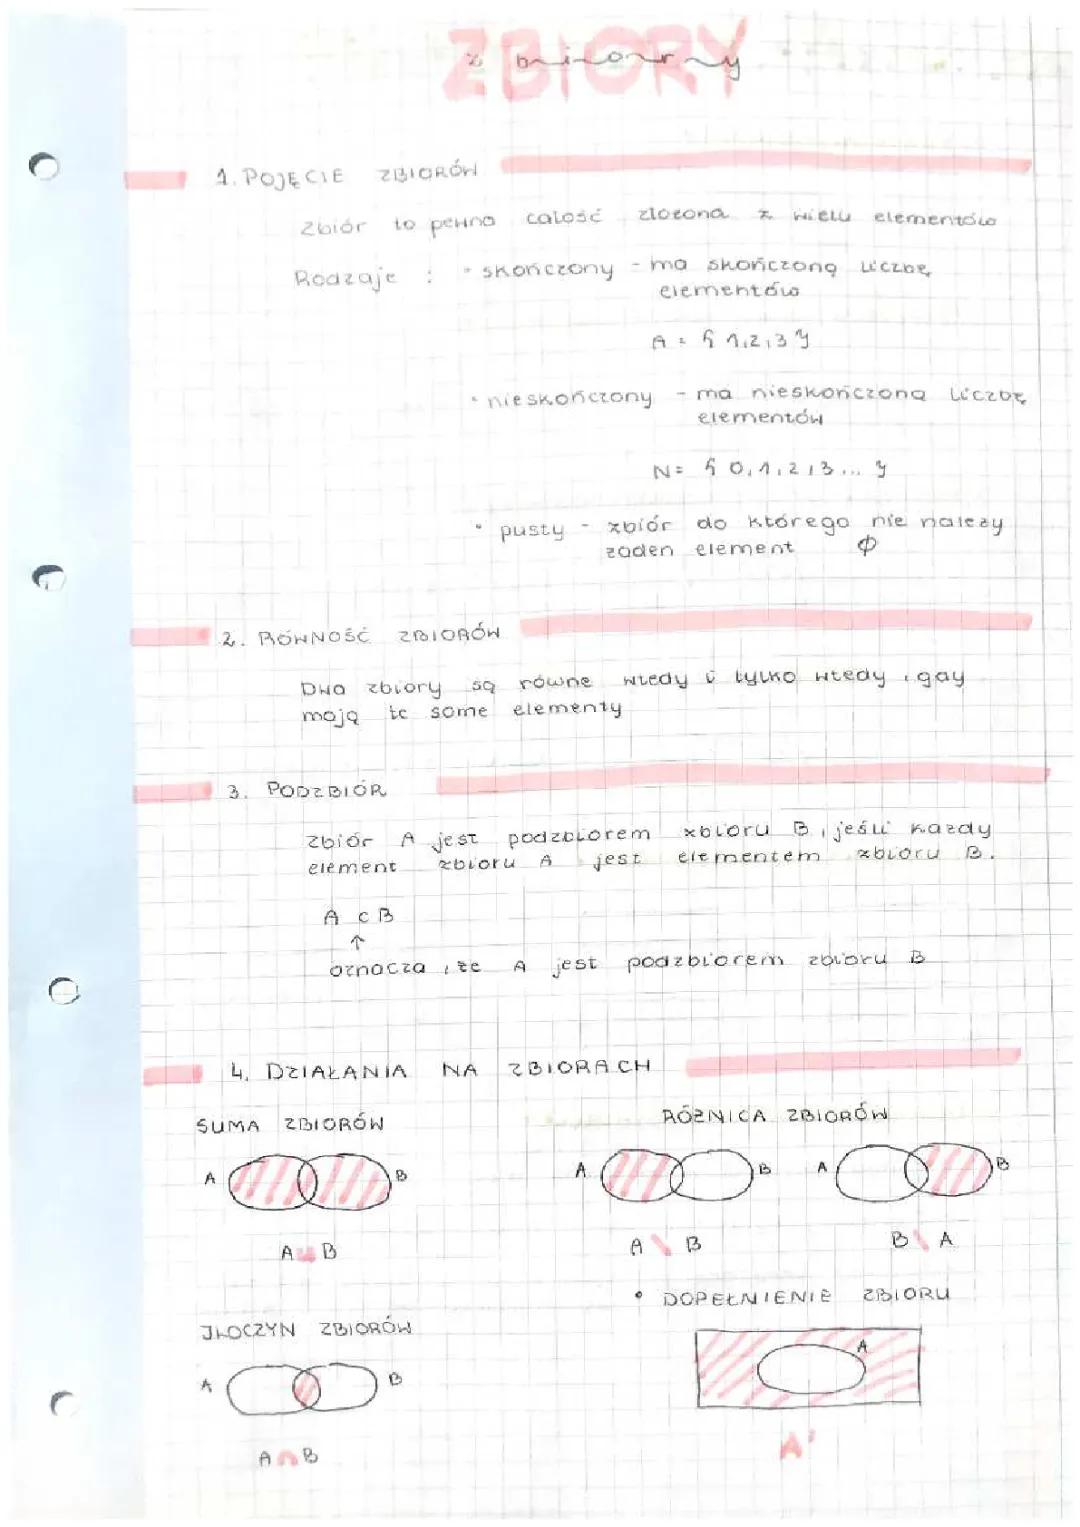 ZBIORY
zbiory
1. POJĘCIE ZBIORÓW
Zbiór to pewna całość złożona z wielu elementów
Rodzaje : • skończony - ma skończoną liczbę
elementów
A = {1,2,3}
• nieskończony - ma nieskończoną liczbę
elementów
N = {0,1,2,3...}
• pusty - zbiór do którego nie należy
żaden element ∅
2. RÓWNOŚĆ ZBIORÓW
Dwa zbiory są równe wtedy i tylko wtedy, gdy
mają te same elementy
3. PODZBIÓR
Zbiór A jest podzbiorem zbioru B, jeśli każdy
element zbioru A jest elementem zbioru B.
A ⊂ B
↑
oznacza, że A jest podzbiorem zbioru B
4. DZIAŁANIA NA ZBIORACH
SUMA ZBIORÓW
A B
A ∪ B
RÓŻNICA ZBIORÓW
A B A B
A \ B B \ A
• DOPEŁNIENIE ZBIORU
A
A'
ILOCZYN ZBIORÓW
A B
A ∩ B